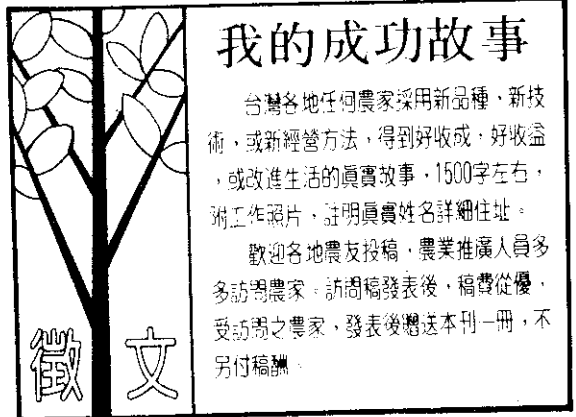 我的成功故事
台灣各地任何農家採用新品種,新技
術,或新經營方法,得到好收成,好收益
,或改進生活的眞實故事,1500字左右,
附工作照片,註明眞實姓名詳細住址。
歡迎各地農友投稿,農業推廣人員多
多訪問農家。訪問稿發表後,稿費從優,
受訪問之農家,發表後贈送本刊一冊,不
另付稿酬。
徵文